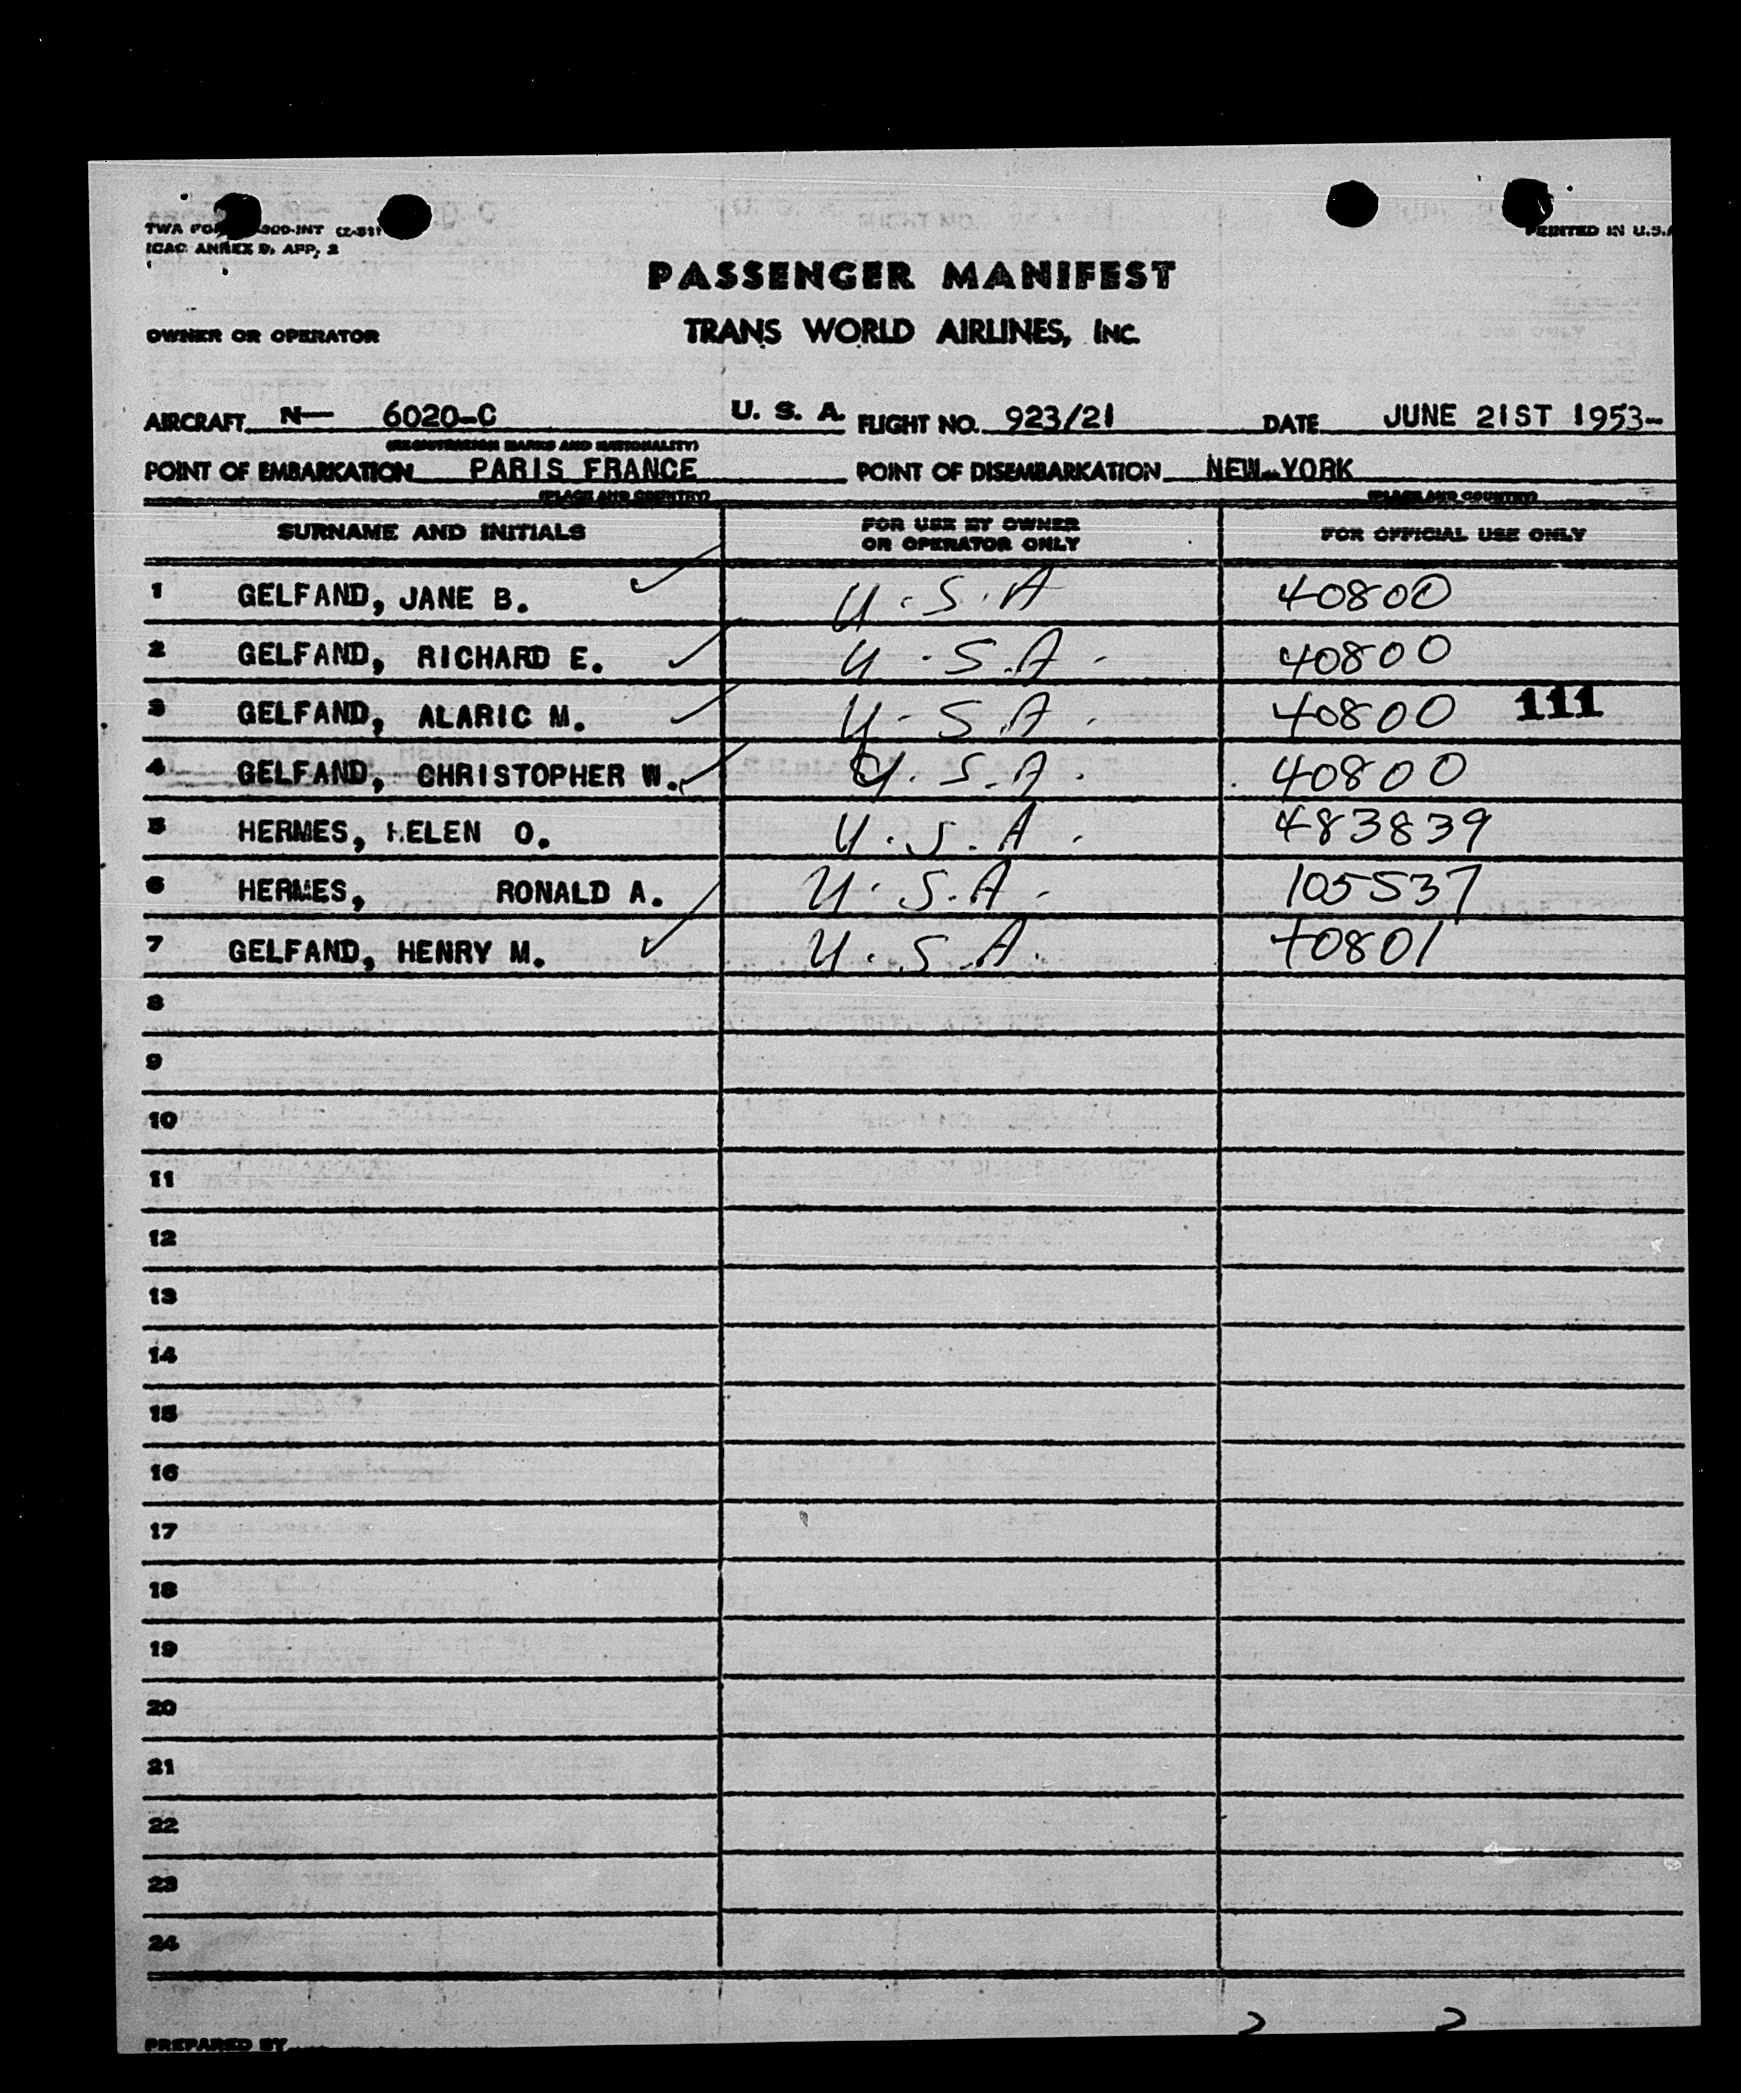 TWA FO 300-INT (2-51)
ICAO ANNEX 9, APP, 2
PRINTED IN U.S.A
PASSENGER MANIFEST
OWNER OR OPERATOR TRANS WORLD AIRLINES, INC.
AIRCRAFT N— 6020-C U. S. A. FLIGHT NO. 923/21 DATE JUNE 21ST 1953-
(REGISTRATION MARKS AND NATIONALITY)
POINT OF EMBARKATION PARIS FRANCE POINT OF DISEMBARKATION NEW YORK
(PLACE AND COUNTRY) (PLACE AND COUNTRY)
SURNAME AND INITIALS FOR USE BY OWNER OR OPERATOR ONLY FOR OFFICIAL USE ONLY
1 GELFAND, JANE B. U.S.A 40800
2 GELFAND, RICHARD E. U.S.A. 40800
3 GELFAND, ALARIC M. U.S.A. 40800 111
4 GELFAND, CHRISTOPHER W. U.S.A. 40800
5 HERMES, HELEN O. U.S.A. 483839
6 HERMES, RONALD A. U.S.A. 105537
7 GELFAND, HENRY M. U.S.A. 40801
8
9
10
11
12
13
14
15
16
17
18
19
20
21
22
23
24
PREPARED BY